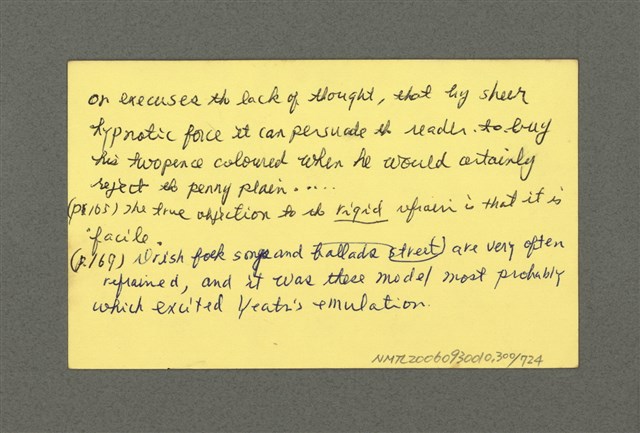 or excuses th lack of thought, that by sheer
hypnotic force it can persuade th reader to buy
his twopence coloured when he would certainly
reject th penny plain.....
(p.165) The true objection to th rigid refrain is that it is
"facile.
(p.169) Irish folk songs and ballads street are very often
refrained, and it was these model most probably
which excited Yeats's emulation.
NMTL20060930010,300/724